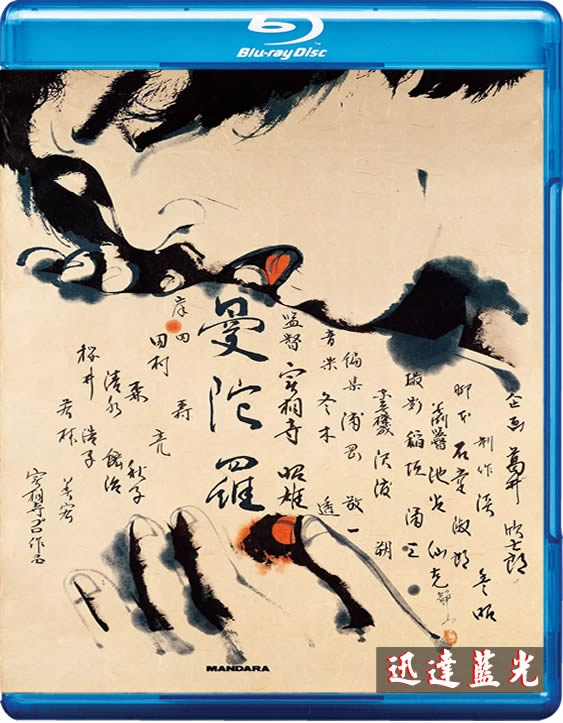 Blu-ray Disc
企画 葛井 欣士郎
制作 淡 豊昭
脚本 石堂 淑朗
池谷 仙克
静山
撮影 稲垣 涌三
沢渡 朔
編集 浦岡 敬一
音楽 冬木 透
監督 實相寺 昭雄
曼陀羅
岸田
田村 亮
清水 紘治
桜井 浩子
若林 美宏
實相寺プロ作品
MANDARA
迅達藍光